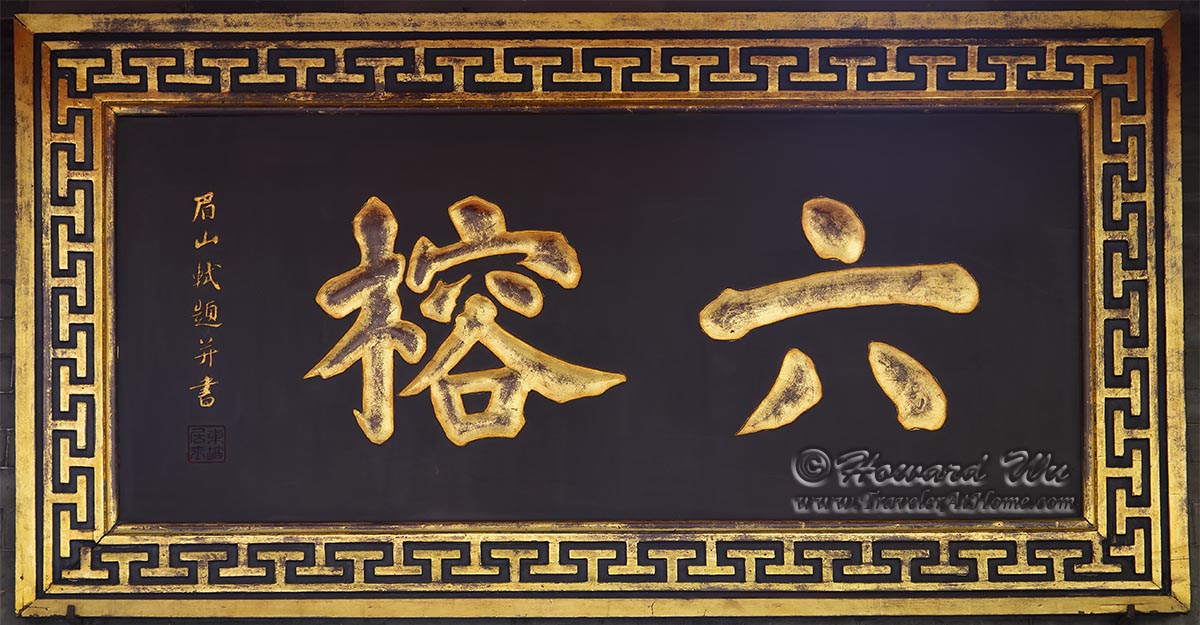 六榕
眉山軾題并書
東坡居士
©Howard Wu
www.TravelerAtHome.com